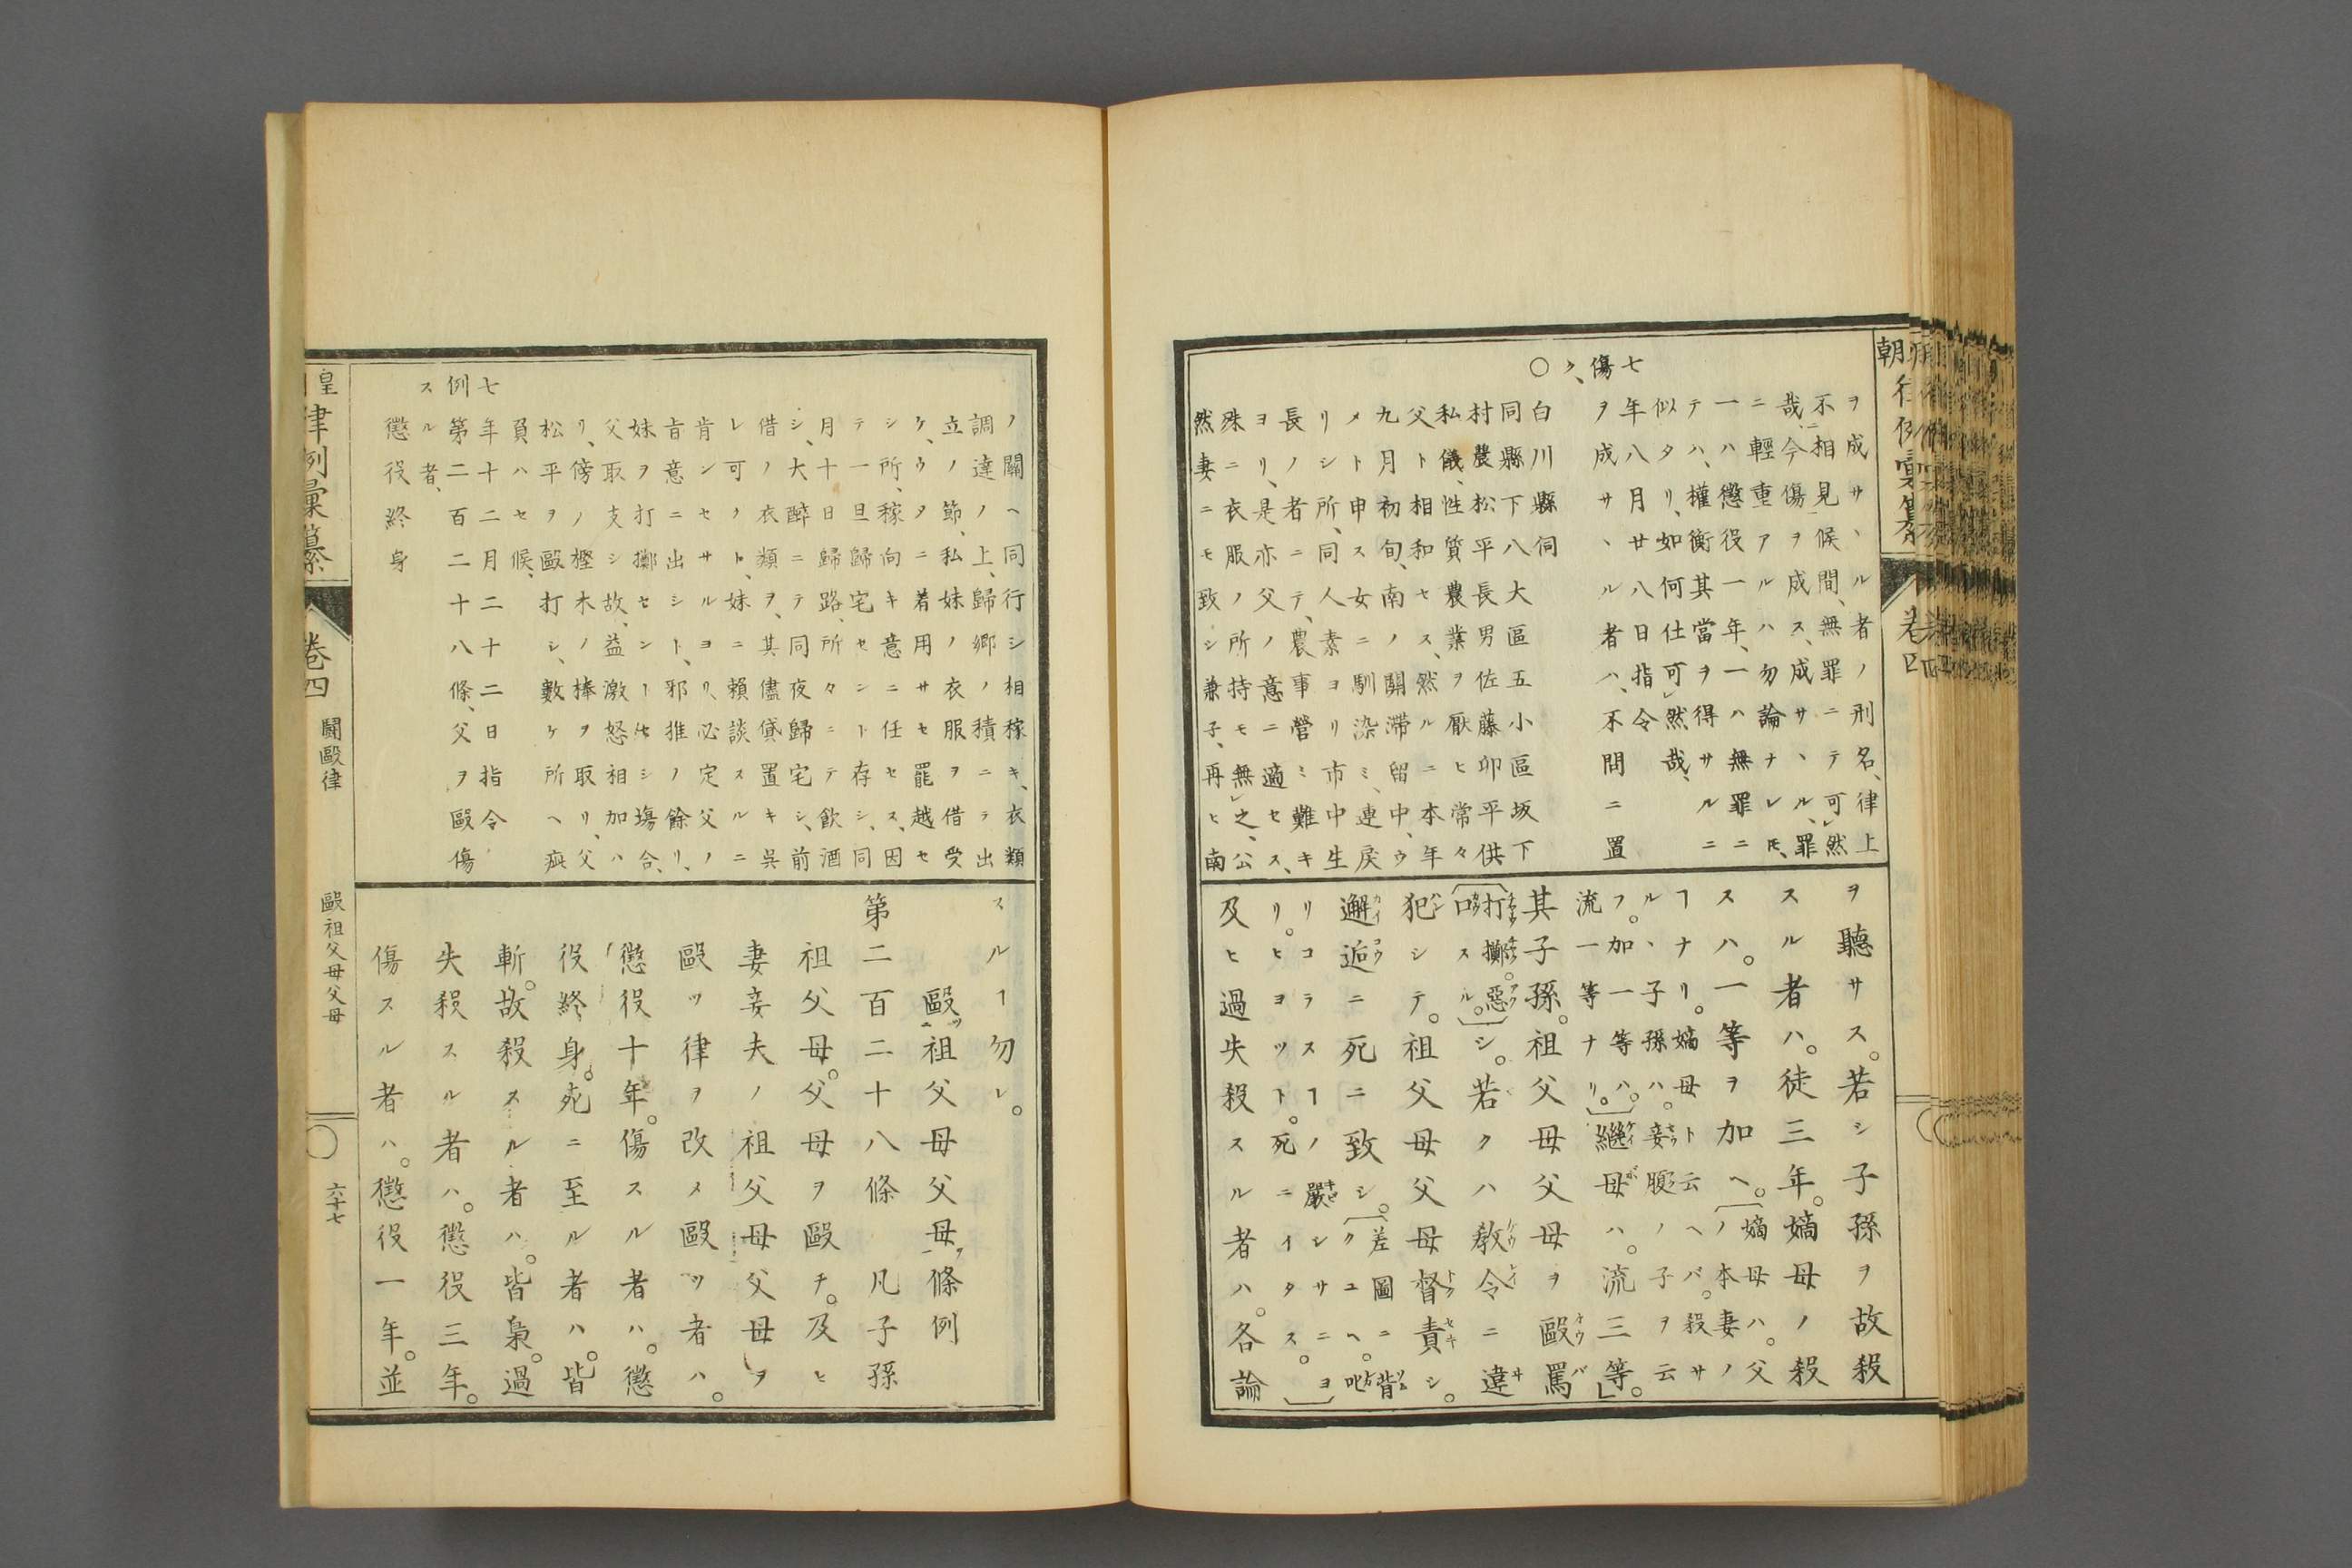 ヲ成サヽル者ノ刑名、律上
不相見候間、無罪ニテ可然
哉、今傷ヲ成ス、成サヽル、罪
ニ輕重アルハ勿論ナレ𪜈、
一ハ懲役一年、一ハ無罪ニ
テハ、權衡其當ヲ得サルニ
似タリ、如何仕可然哉、
七年八月廿八日指令
傷ヲ成サヽル者ハ、不問ニ置
ク、
○白川縣伺
同縣下八大區五小區坂下
村農松平長男佐藤卯平供
私儀、性質農業ヲ厭ヒ常々
父ト相和セス、然ルニ本年
九月初旬、南ノ關滯留中、ウ
メト申ス女ニ馴染ミ、連戻
リシ所、同人素ヨリ市中生
長ノ者ニテ、農事營ミ難キ
ヨリ、是亦父ノ意ニ適セス、
殊ニ衣服ノ所持モ無之、公
然妻ニモ致シ兼子、再ヒ南
ヲ聽サス。若シ子孫ヲ故殺
スル者ハ。徒三年。嫡母ノ殺
スハ。一等ヲ加ヘ。〔嫡母ハ。父ノ本妻ノ
ヿナリ。嫡母ト云ヘバ。殺サルヽ子孫ハ。妾腹ノ子ヲ云
フ。加一等ハ。流一等ナリ。〕繼母ハ。流三等。」
其子孫。祖父母父母ヲ毆罵
〔打擲。惡口スル。〕シ。若クハ敎令ニ違
犯シテ。祖父母父母督責シ。
邂逅ニ死ニ致シ。〔差圖ニ背クユヘ。叱
リコラスヿノ嚴シサニヨリ。ヒヨツト。死ニイタス。〕
及ヒ過失殺スル者ハ。各論
ノ關ヘ同行シ相稼キ、衣類
調達ノ上、歸郷ノ積ニテ出
立ノ節、私妹ノ衣服ヲ借受
ケ、ウヲニ着用サセ罷越セ
シ所、稼向キ意ニ任セス、因
テ一旦歸宅セシト存シ、同
月十日歸路、所々ニテ飮酒
シ、大醉ニテ同夜歸宅シ、前
借ノ衣類ヲ、其儘貸置キ呉
レ可ノト、妹ニ賴談スルニ
肯ンセサルヨリ、必定父ノ
旨意ニ出シト、邪推ノ餘リ、
妹ヲ打擲セントセシ塲合、
父取支シ故、益激怒相加ハ
リ、傍ノ樫木ノ棒ヲ取リ、父
松平ヲ毆打シ、數ケ所ヘ疵
負ハセ候、
七年十二月二十二日指令
例第二百二十八條、父ヲ毆傷
スル者、
懲役終身
スルヿ勿レ。
毆祖父母父母條例
第二百二十八條 凡子孫
祖父母。父母ヲ毆チ。及ヒ
妻妾夫ノ祖父母父母ヲ
毆ツ律ヲ改メ毆ツ者ハ。
懲役十年。傷スル者ハ。懲
役終身。死ニ至ル者ハ。皆
斬。故殺スル者ハ。皆梟。過
失殺スル者ハ。懲役三年。
傷スル者ハ。懲役一年。並
皇 律例彙纂 卷四 鬪毆律 毆祖父母父母 六十七